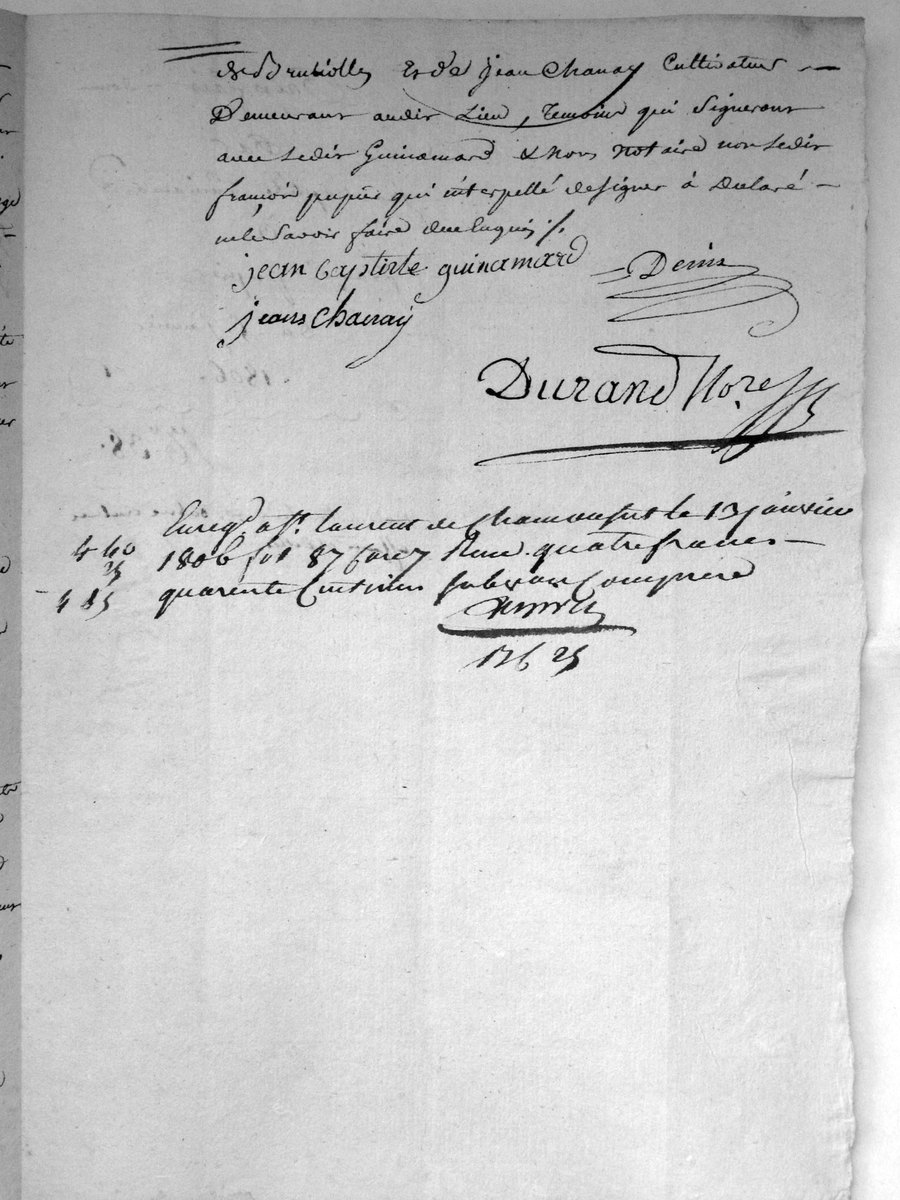 de Brussiolles et de jean Chanay Cultivateur
Demeurant audit Lieu, temoins qui signeront
avec ledit Guinamard & nous notaire non ledit
françois pupier qui interpellé de signer à déclaré
ne le savoir faire de ce enquis ./.
jean baptiste guinamard
Denis
jean Chanay
Durand Nore
Enregé a St. laurent de Chamousset le 13 janvier
4 40 1806 fol 87 Case 7 Reçu quatre francs
4 85 quarente Centimes subvon Comprise
126 25